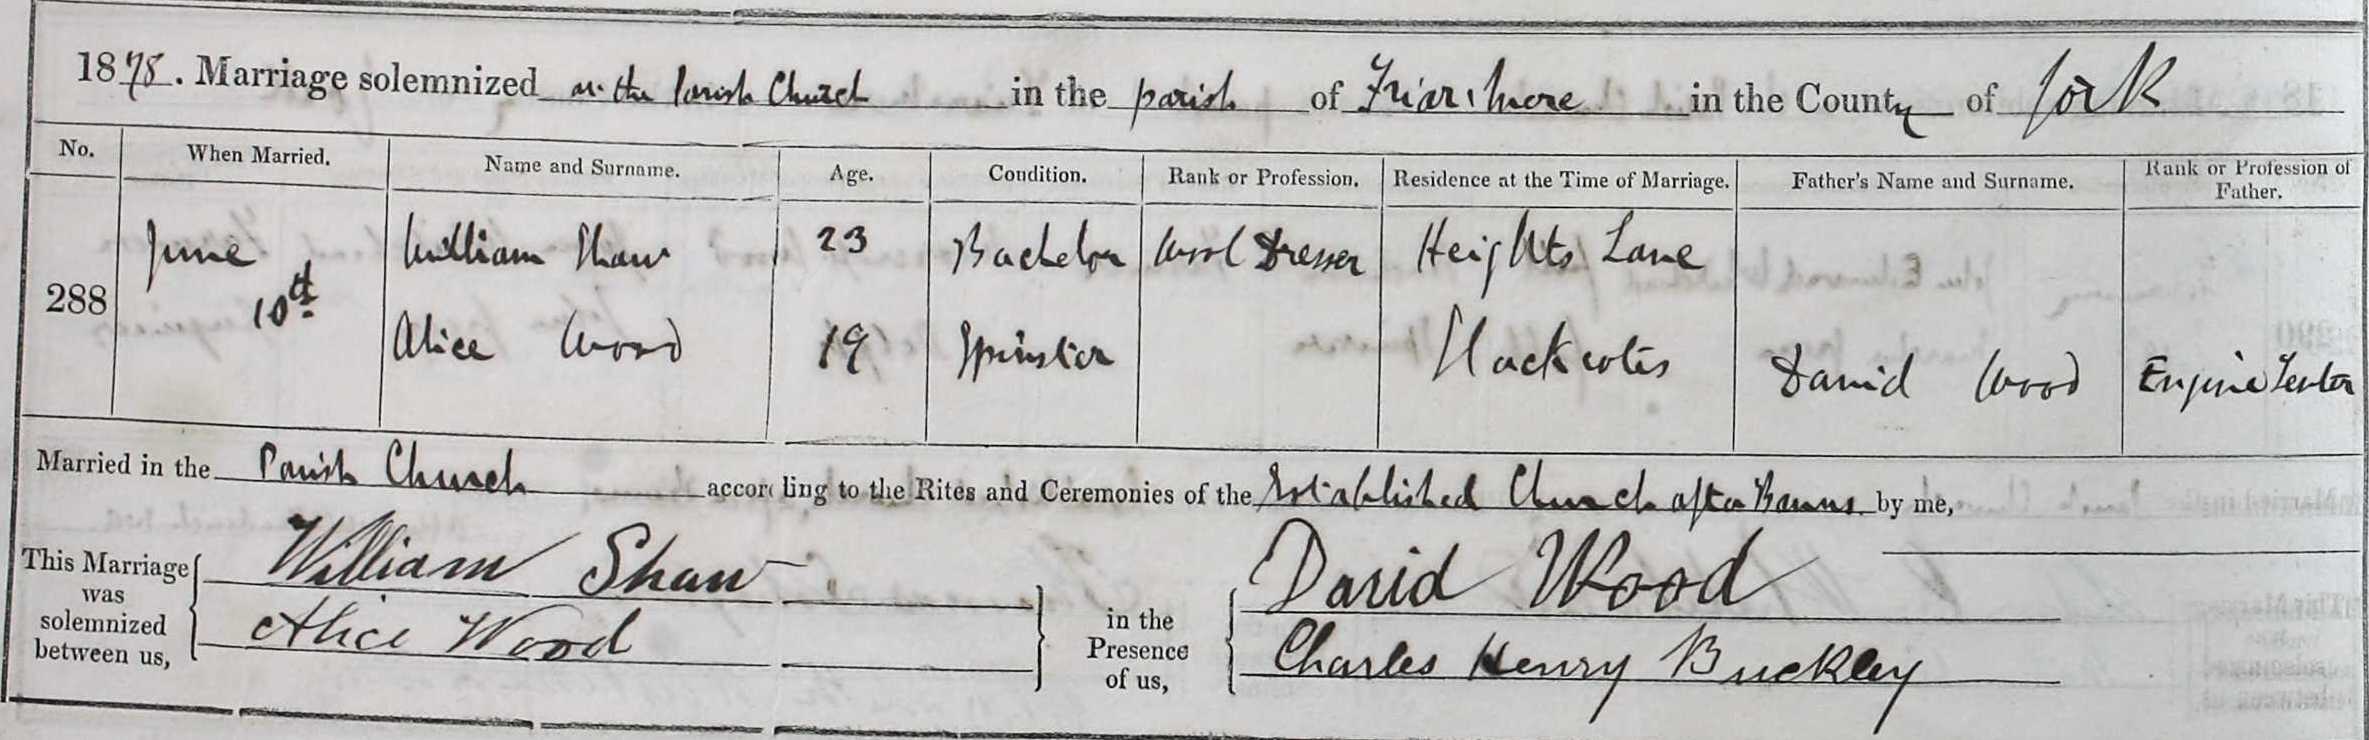 1878. Marriage solemnized in the Parish Church in the parish of Friarmere in the County of York
No. When Married. Name and Surname. Age. Condition. Rank or Profession. Residence at the Time of Marriage. Father's Name and Surname. Rank or Profession of Father.
288 June 10th William Shaw 23 Bachelor Wool Dresser Heights Lane
Alice Wood 19 Spinster Slackcotes David Wood Engine Tenter
Married in the Parish Church according to the Rites and Ceremonies of the Established Church after Banns by me,
This Marriage was solemnized between us, William Shaw in the Presence of us, David Wood
Alice Wood Charles Henry Buckley